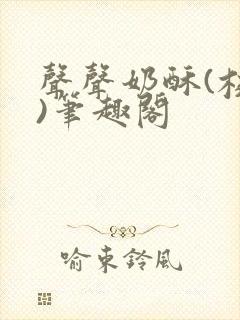 聲聲奶酥(校
)筆趣閣
喻東鈴風